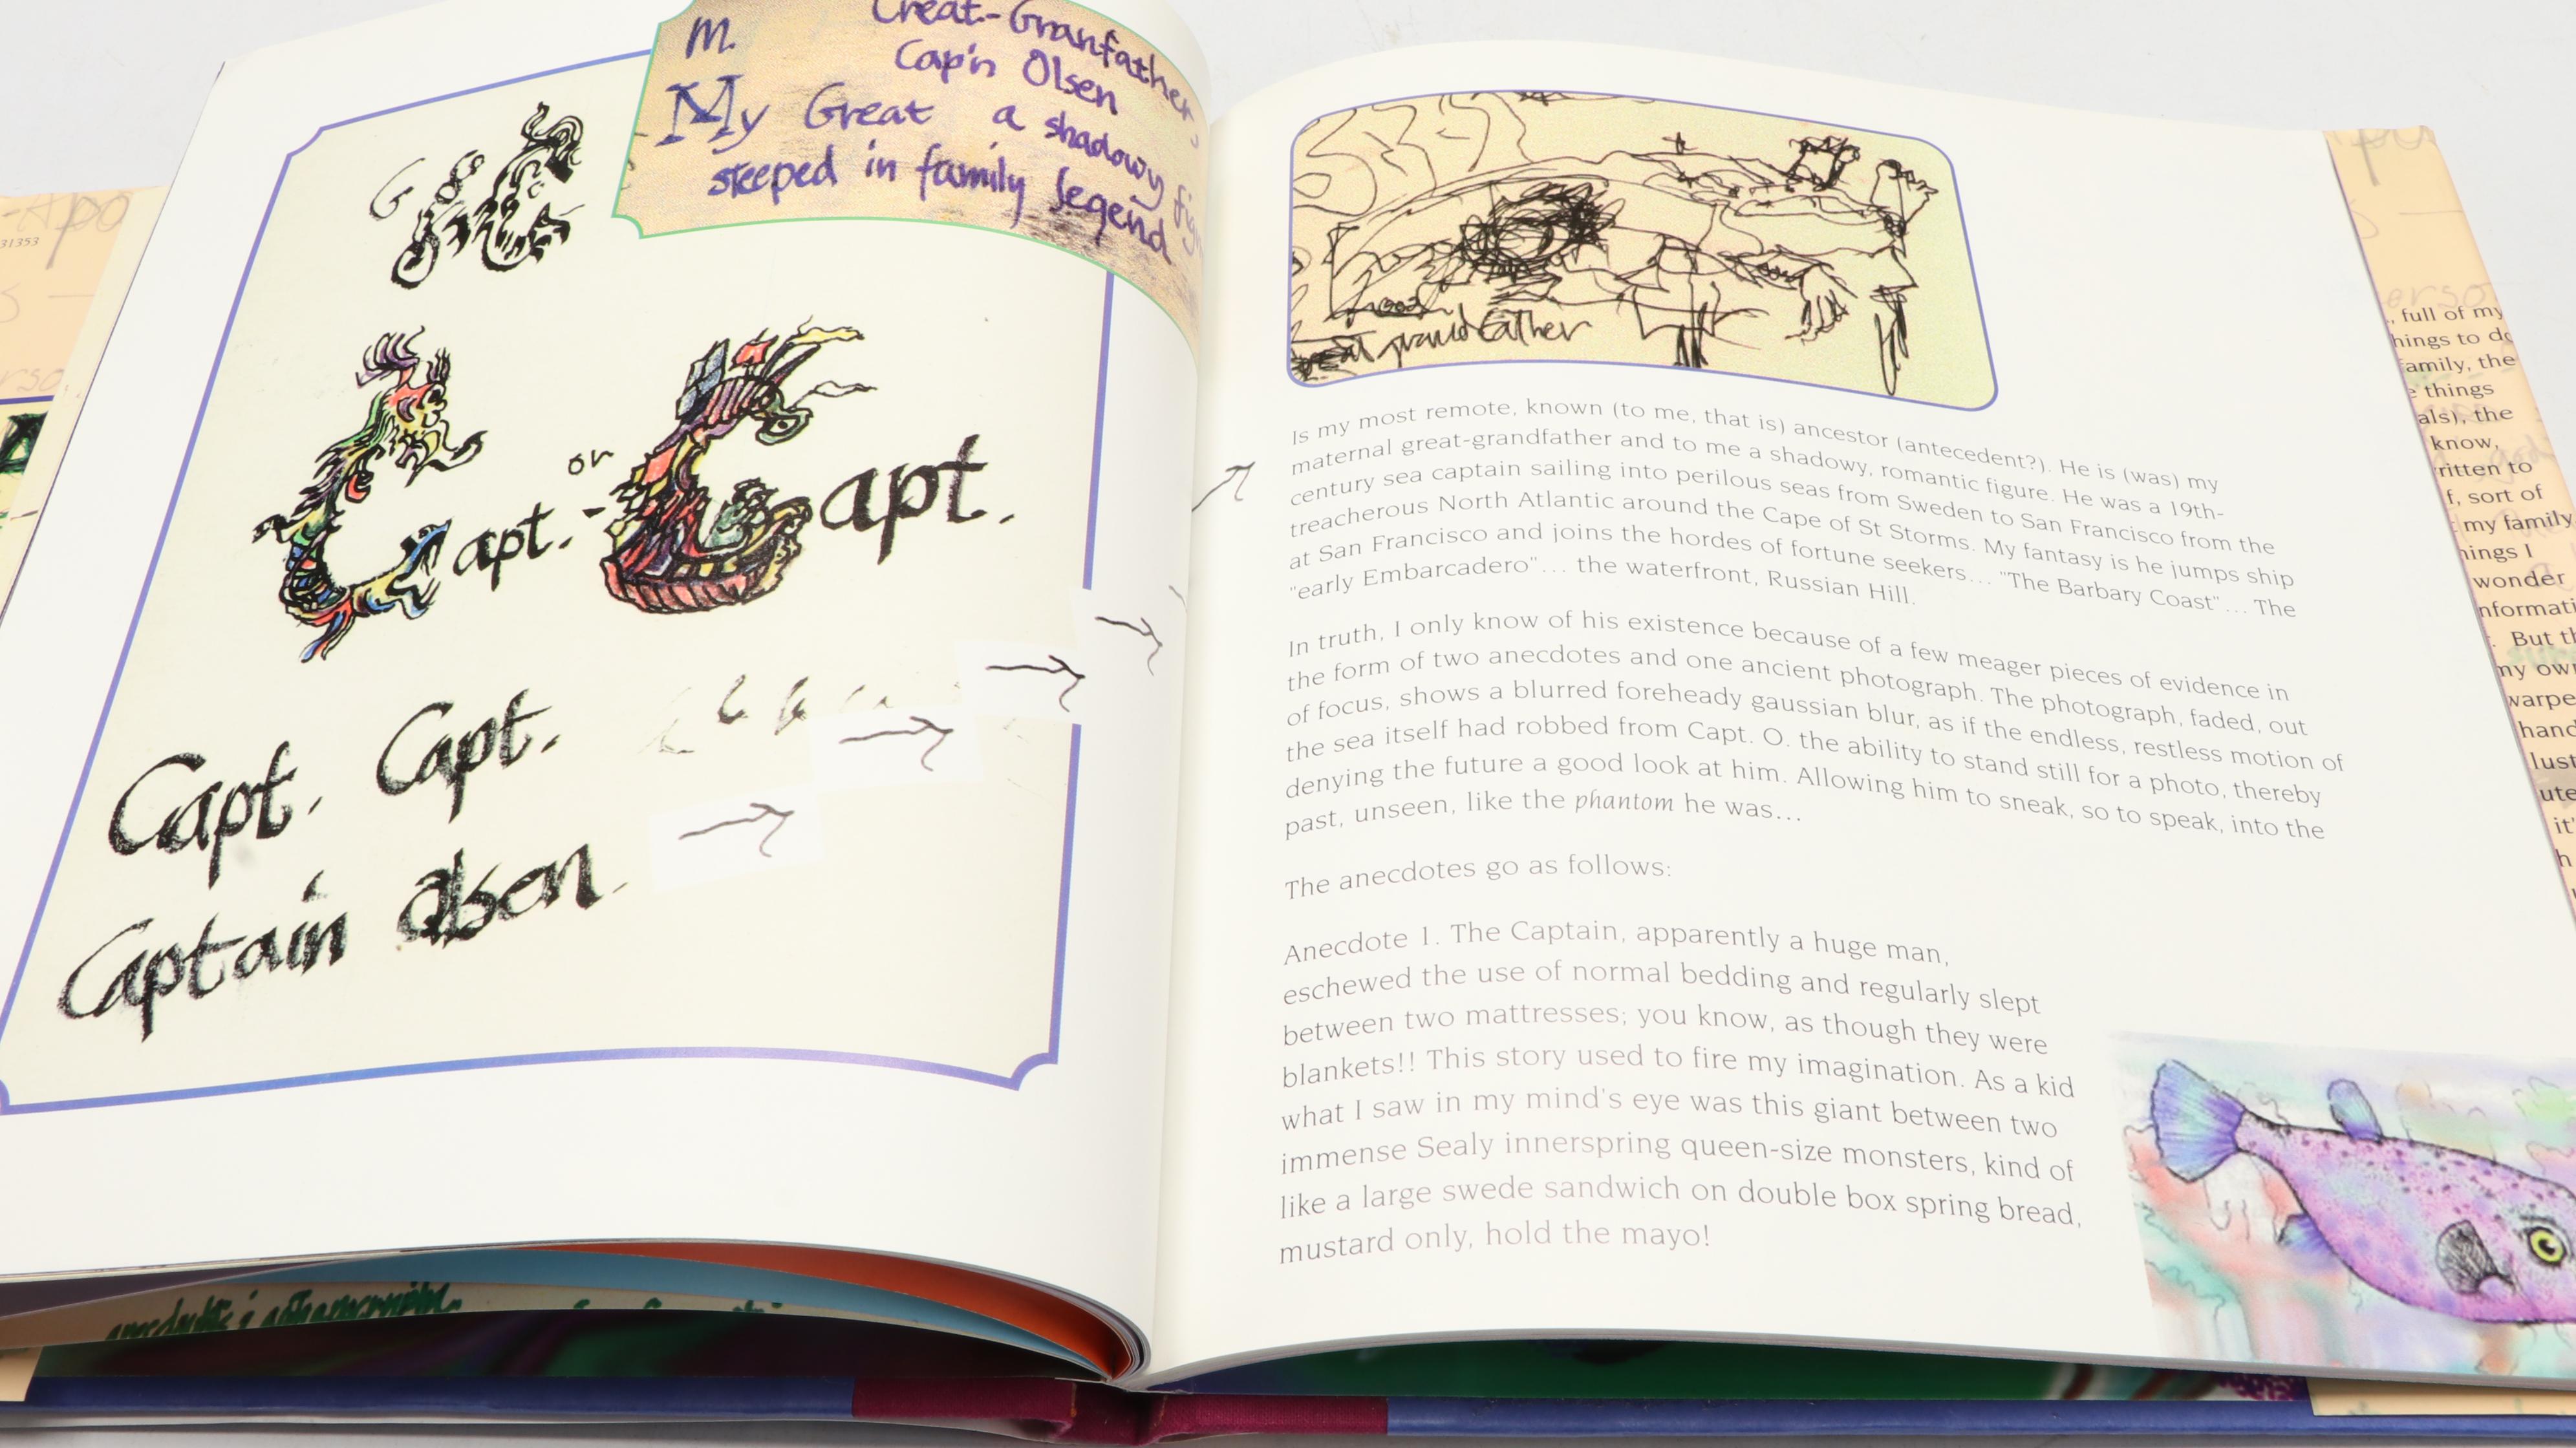 m.
Great-Granfather,
Cap'n Olsen
My Great a shadowy
steeped in family legend
G
Capt. - or Capt.
Capt. Capt.
Captain Olsen.
great grandfather
Is my most remote, known (to me, that is) ancestor (antecedent?). He is (was) my
maternal great-grandfather and to me a shadowy, romantic figure. He was a 19th-
century sea captain sailing into perilous seas from Sweden to San Francisco from the
treacherous North Atlantic around the Cape of St Storms. My fantasy is he jumps ship
at San Francisco and joins the hordes of fortune seekers... "The Barbary Coast"... The
"early Embarcadero"... the waterfront, Russian Hill.
In truth, I only know of his existence because of a few meager pieces of evidence in
the form of two anecdotes and one ancient photograph. The photograph, faded, out
of focus, shows a blurred foreheady gaussian blur, as if the endless, restless motion of
the sea itself had robbed from Capt. O. the ability to stand still for a photo, thereby
denying the future a good look at him. Allowing him to sneak, so to speak, into the
past, unseen, like the phantom he was...
The anecdotes go as follows:
Anecdote 1. The Captain, apparently a huge man,
eschewed the use of normal bedding and regularly slept
between two mattresses; you know, as though they were
blankets!! This story used to fire my imagination. As a kid
what I saw in my mind's eye was this giant between two
immense Sealy innerspring queen-size monsters, kind of
like a large swede sandwich on double box spring bread,
mustard only, hold the mayo!
-Apo
31353
, full of my
hings to do
family, the
things
als), the
know,
ritten to
f, sort of
my family
hings I
wonder
nformati
. But th
my own
warpe
hand
lust
ute
it'
h